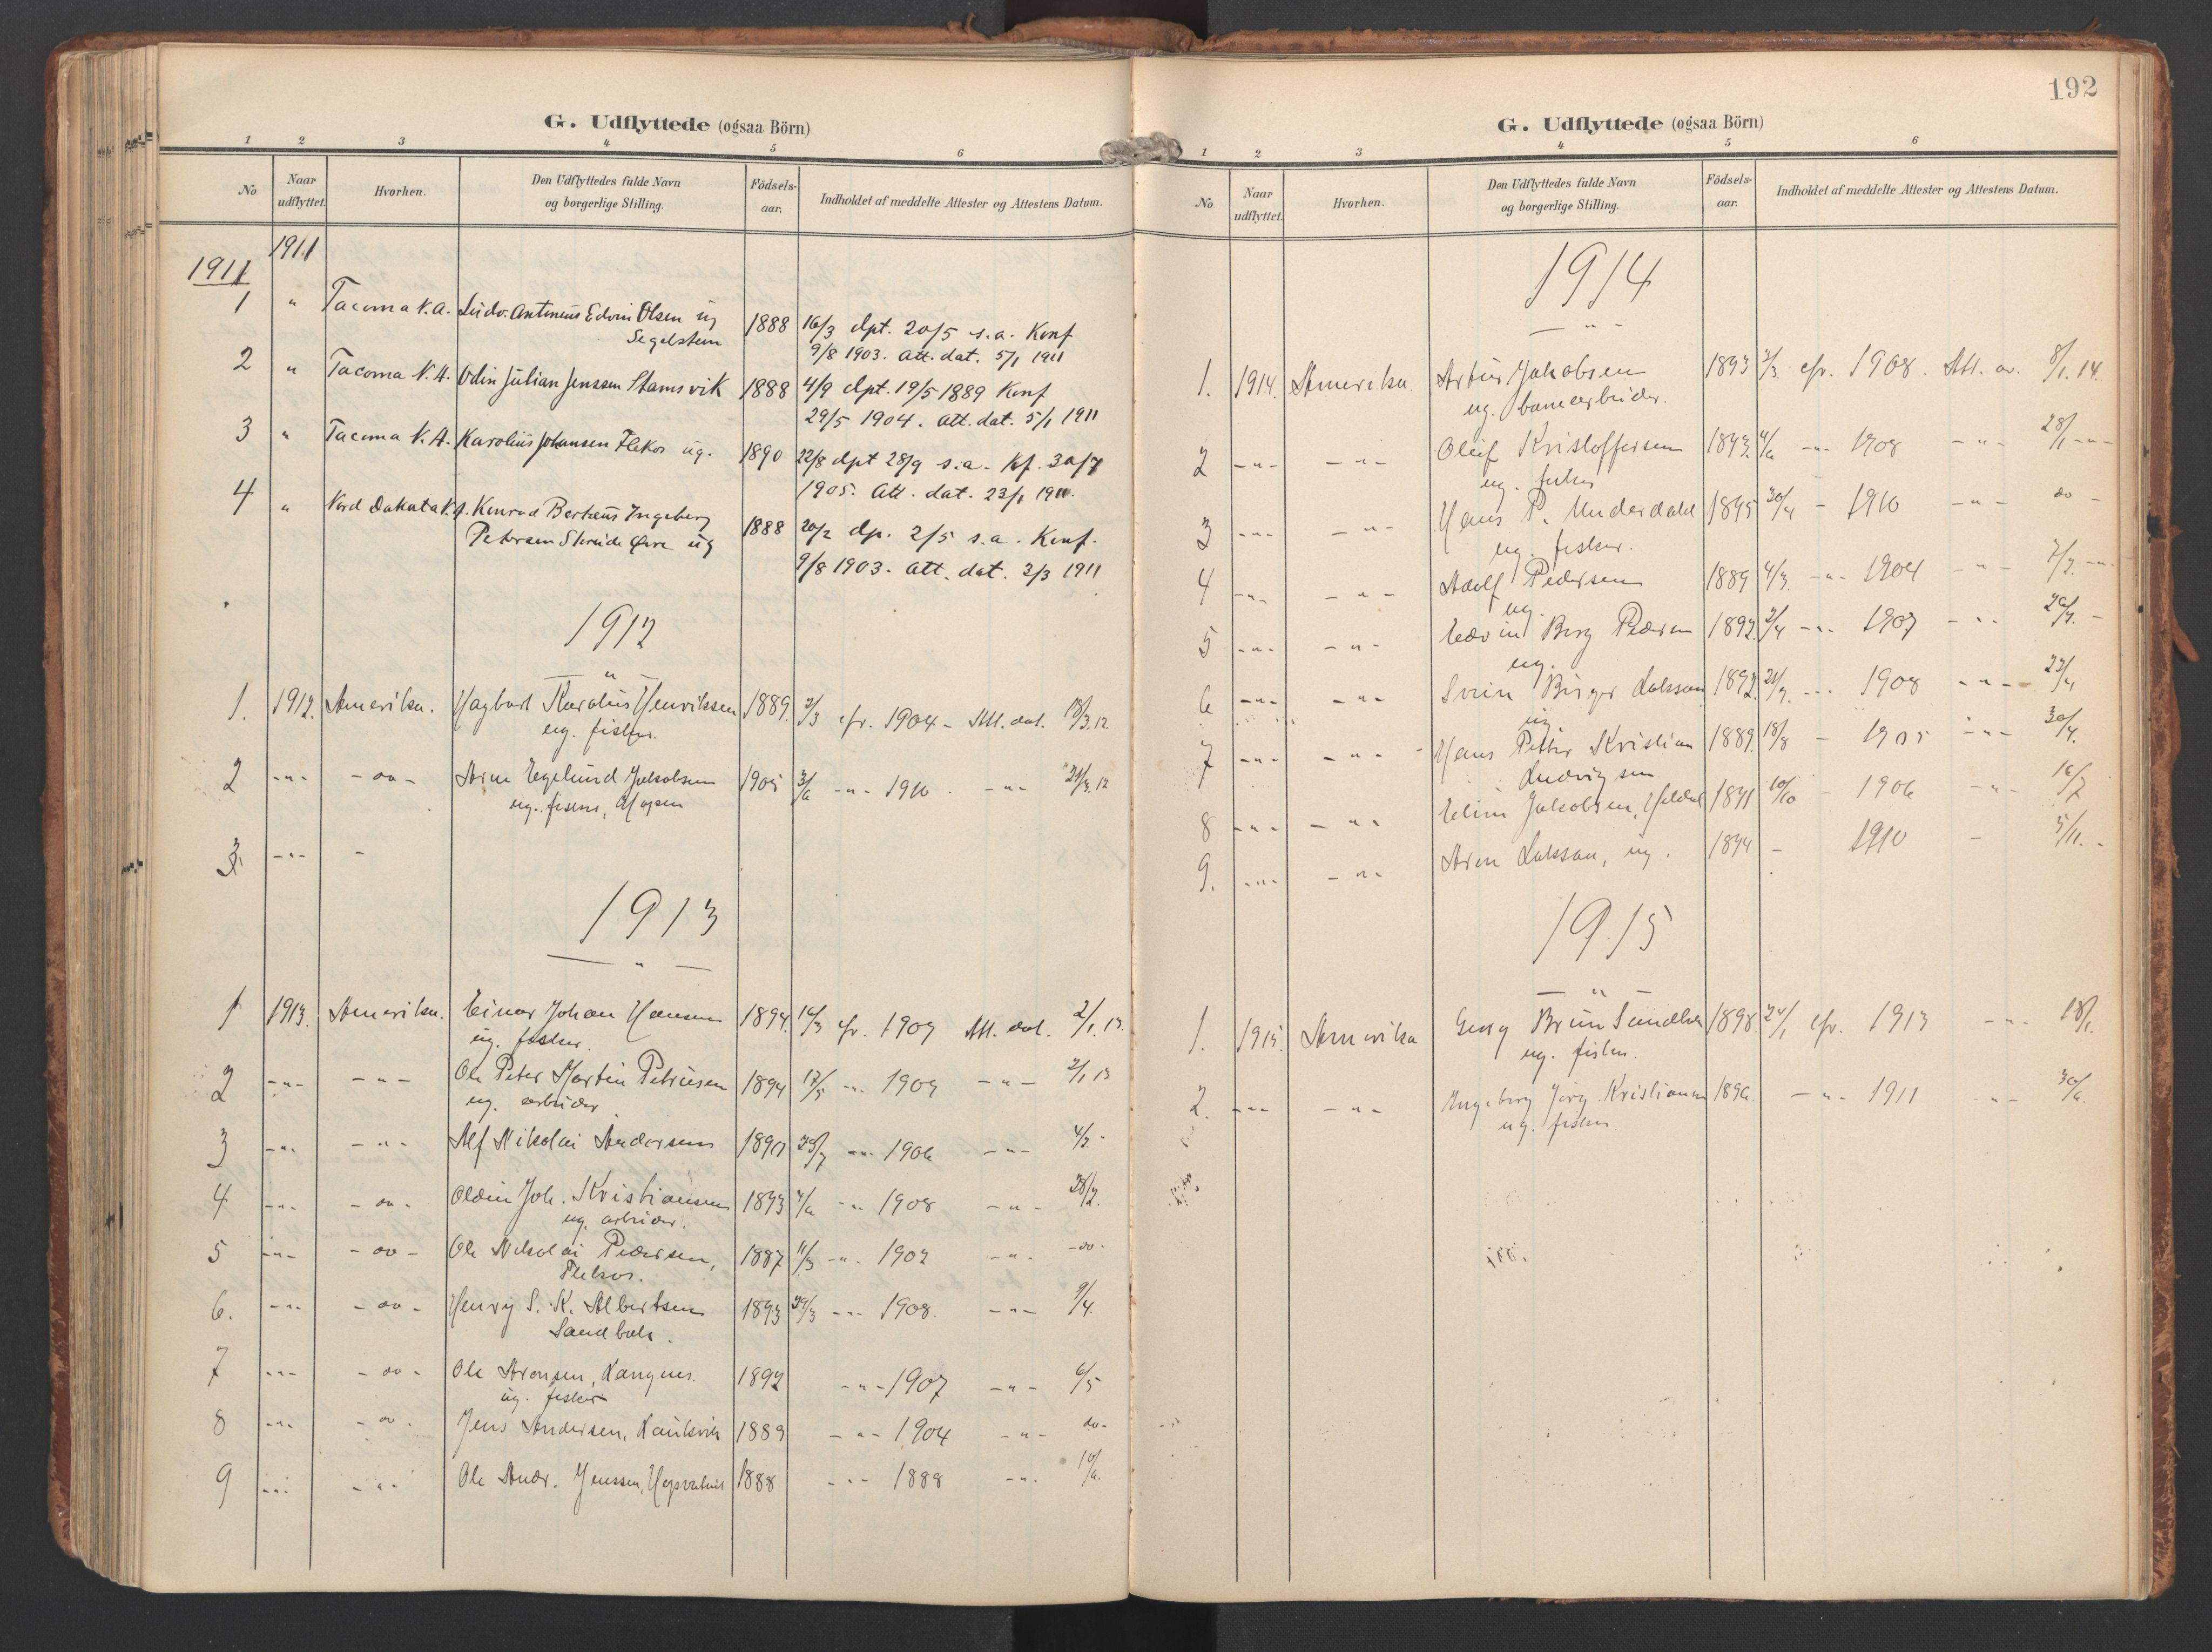 G. Udflyttede (ogsaa Börn)
1 2 3 4 5 6
No
Naar udflyttet.
Hvorhen.
Den Udflyttedes fulde Navn og borgerlige Stilling.
Födsels-aar.
Indholdet af meddelte Attester og Attestens Datum.
1911
1911
1 " Tacoma N.A. Ludv. Antonius Edvin Olsen ug 1888 16/3 dpt. 20/5 s.a. Konf
Segelstein 9/8 1903. Att. dat. 5/1 1911
2 " Tacoma N.A. Odin Julian Jenssen Stamsvik 1888 4/9 dpt. 19/5 1889 Konf
29/5 1904. Att. dat. 5/1 1911
3 " Tacoma N.A. Karolius Johansen Flekos ug. 1890 22/8 dpt 28/9 s.a. Kf. 30/7
1905. Att. dat. 23/1 1911.
4 " Nord Dakota N.A. Konrad Bertæus Ingeberg
Petersen Skreide Øvre ug 1888 20/2 dp. 2/5 s.a. Konf.
9/8 1903. Att. dat. 3/3 1911
1912
— " —
1. 1912. Amerika. Hagbart Karolius Henriksen 1889. 2/3 cfr. 1904 - Att. dat. 18/3.12.
ug. fisker.
2 -"- -oo- Arne Egelund Jakobsen 1905 3/6 -"- 1910 -"-
ug. fisker,
3. -"- -
1913
— " —
1 1913. Amerika. Einar Johan Hansen 1894. 16/3 cfr. 1909 Att. dat. 2/1.13.
ug. fisker.
2 -"- -"- Ole Peter Martin Petrusen 1894 17/5 -"- 1909 -"- 2/1 13
ug. arbeider
3 -"- -"- Alf Nikolai Andersen 1890 -"- 1906 -"- 4/2 -
4 -"- -oo- Oldin Joh. Kristiansen 1893 4/6 -"- 1908 -"- 28/2.
ug. arbeider.
5 -"- -oo- Ole Nikolai Pedersen, 1887 11/3 -"- 1902 -"- -oo-
Flekos.
6. -"- -oo- Henry S. K. Albertsen 1893 29/3 -"- 1908. -"- 9/4.
Sandbak.
7 -"- -oo- Ole Aronsen, Langnes. 1892 -"- 1907 -"- 6/5
ug. fisker
8 -"- -oo- Jens Andersen, Kaukvik 1889 -"- 1904 -"- do-
9 -"- -"- Ole Andr. Jenssen, 1888 -"- 1888 -"- 10/6.
192
G. Udflyttede (ogsaa Börn)
1 2 3 4 5 6
No
Naar udflyttet.
Hvorhen.
Den Udflyttedes fulde Navn og borgerlige Stilling.
Födsels-aar.
Indholdet af meddelte Attester og Attestens Datum.
1914
— " —
1. 1914. Amerika. Artur Jakobsen 1893 2/3. cfr. 1908. Att. av. 8/1.14.
ug. banearbeider.
2 -"- -"- Oleif Kristoffersen 1893. 4/6 -"- 1908 -"- 28/1 -"-
ug. fisker
3 -"- -"- Hans P. Underdahl 1895 30/4 - 1910 -"- do -
ug. fisker.
4 -"- -"- Adolf Pedersen 1889 4/3. -"- 1904 -"- -"-
ug.
5 -"- -"- Edvin Berg Pedersen 1892. 2/4 -"- 1907 -"-
ug.
6 -"- -"- Svein Birger Lakssaa 1892. -"- 1908 -"- 22/4
ug.
7 -"- -"- Hans Petter Kristian 1889. 18/8 - 1905 -"- 30/4.
Ludvigsen
8 -"- -"- Elim Jakobsen, 1891 10/10 - 1906 -"- 16/7
9. -"- -"- Aron Lakssaa, ug. 1894 - 1910 - 5/11. -
1915
— " —
1. 1915. Amerika Georg Brun Sandbak 1898. 24/1 cfr. 1913 -"- 18/1.
ug. fisker.
2. -"- -"- Ingeberg Jørg. Kristiansen 1896. -"- 1911 -"- 30/6.
ug. fisker.